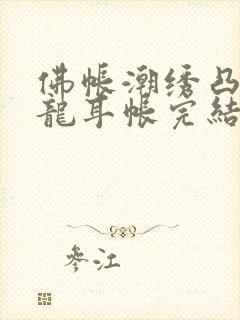 佛帐潮绣凸
龍耳帐完結
參江